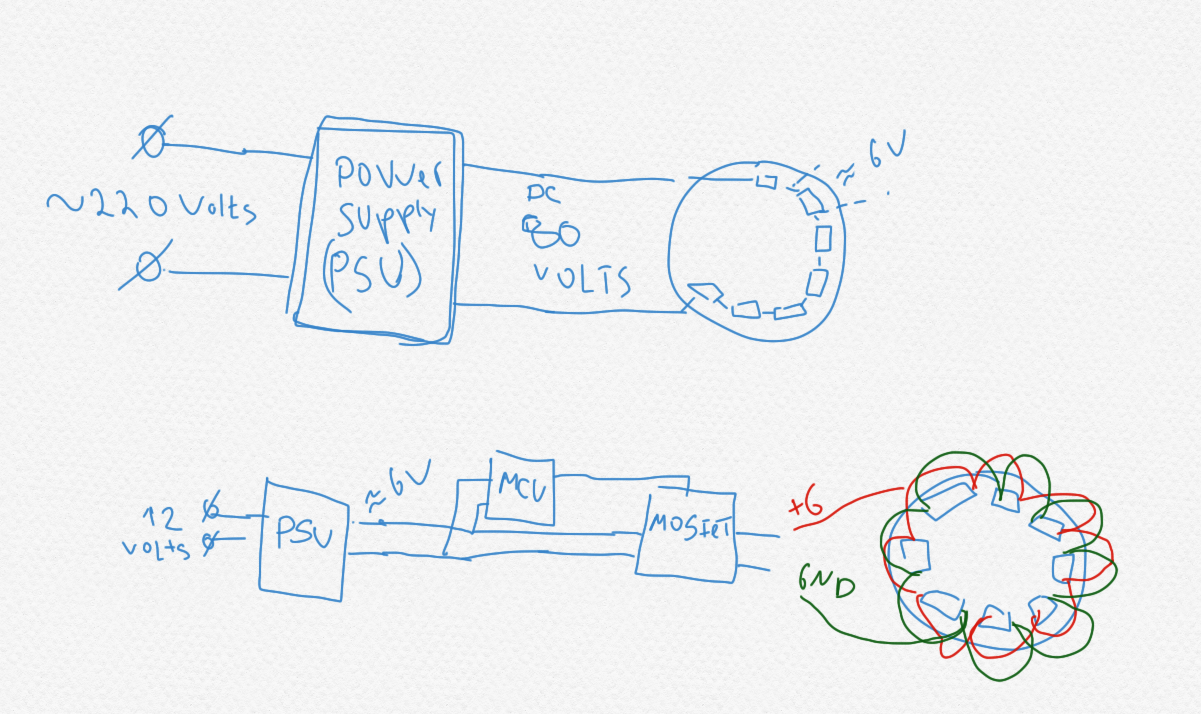 ~220 Volts
POWer
SUpply
(PSU)
DC
80
VOLTS
≈ 6V
12
volts
PSU
≈ 6V
MCU
MOSfeT
+6
GND